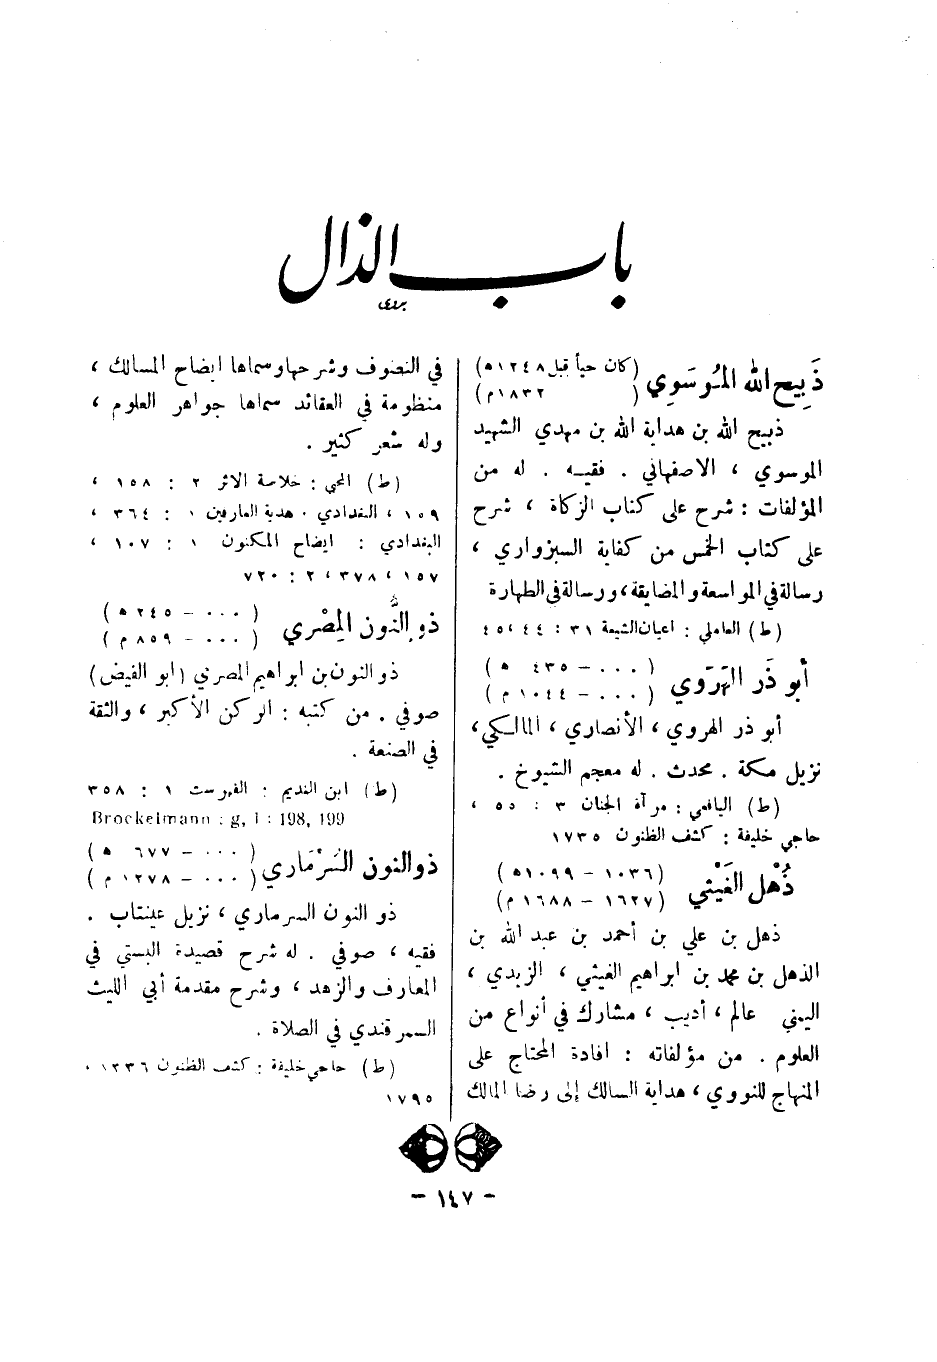 باب الذال
ذَبِيح الله المُوسَوِي (كان حياً قبل ١٢٤٨ ه)
(١٨٣٢ م)
ذبيح الله بن هداية الله بن مهدي الشهيد
الموسوي ، الاصفهاني . فقيه . له من
المؤلفات : شرح على كتاب الزكاة ، شرح
على كتاب الخمس من كفاية السبزواري ،
رسالة في المواسعة والمضايقة، ورسالة في الطهارة
(ط) العاملي : اعيان الشيعة ٣١ : ٤٤ ، ٤٥
أبو ذَر الهَرَوي (٠٠٠ – ٤٣٥ ه)
(٠٠٠ – ١٠٤٤ م)
أبو ذر الهروي ، الأنصاري ، المالكي،
نزيل مكة . محدث . له معجم الشيوخ .
(ط) اليافعي : مرآة الجنان ٣ : ٥٥ ،
حاجي خليفة : كشف الظنون ١٧٣٥
ذُهْل الغَيْثي (١٠٣٦ – ١٠٩٩ ه)
(١٦٢٧ – ١٦٨٨ م)
ذهل بن علي بن أحمد بن عبد الله بن
الذهل بن محمد بن ابراهيم الغيثي ، الزبدي ،
اليمني عالم ، أديب ، مشارك في أنواع من
العلوم . من مؤلفاته : افادة المحتاج على
المنهاج للنووي ، هداية السالك إلى رضا المالك
في التصوف وشرحها وسماها ايضاح المسالك ،
منظومة في العقائد سماها جواهر العلوم ،
وله شعر كثير .
(ط) المحبي : خلاصة الاثر ٢ : ١٥٨ ،
١٥٩ ، البغدادي . هدية العارفين ١ : ٣٦٤ ،
البغدادي : ايضاح المكنون ١ : ١٠٧ ،
١٥٧ ، ٣٧٨ ، ٢ : ٧٢٠
ذو النُّون المِصْري (٠٠٠ – ٢٤٥ ه)
(٠٠٠ – ٨٥٩ م)
ذو النون بن ابراهيم المصري (ابو الفيض)
صوفي . من كتبه : الركن الأكبر ، والثقة
في الصنعة .
(ط) ابن النديم : الفهرست ١ : ٣٥٨
Brockelmann : g, I : 198, 199
ذو النون السُرْماري (٠٠٠ – ٦٧٧ ه)
(٠٠٠ – ١٢٧٨ م)
ذو النون السرماري ، نزيل عينتاب .
فقيه ، صوفي . له شرح قصيدة البستي في
المعارف والزهد ، وشرح مقدمة أبي الليث
السمرقندي في الصلاة .
(ط) حاجي خليفة : كشف الظنون ١٢٣٦ ،
١٧٩٥
– ١٤٧ –